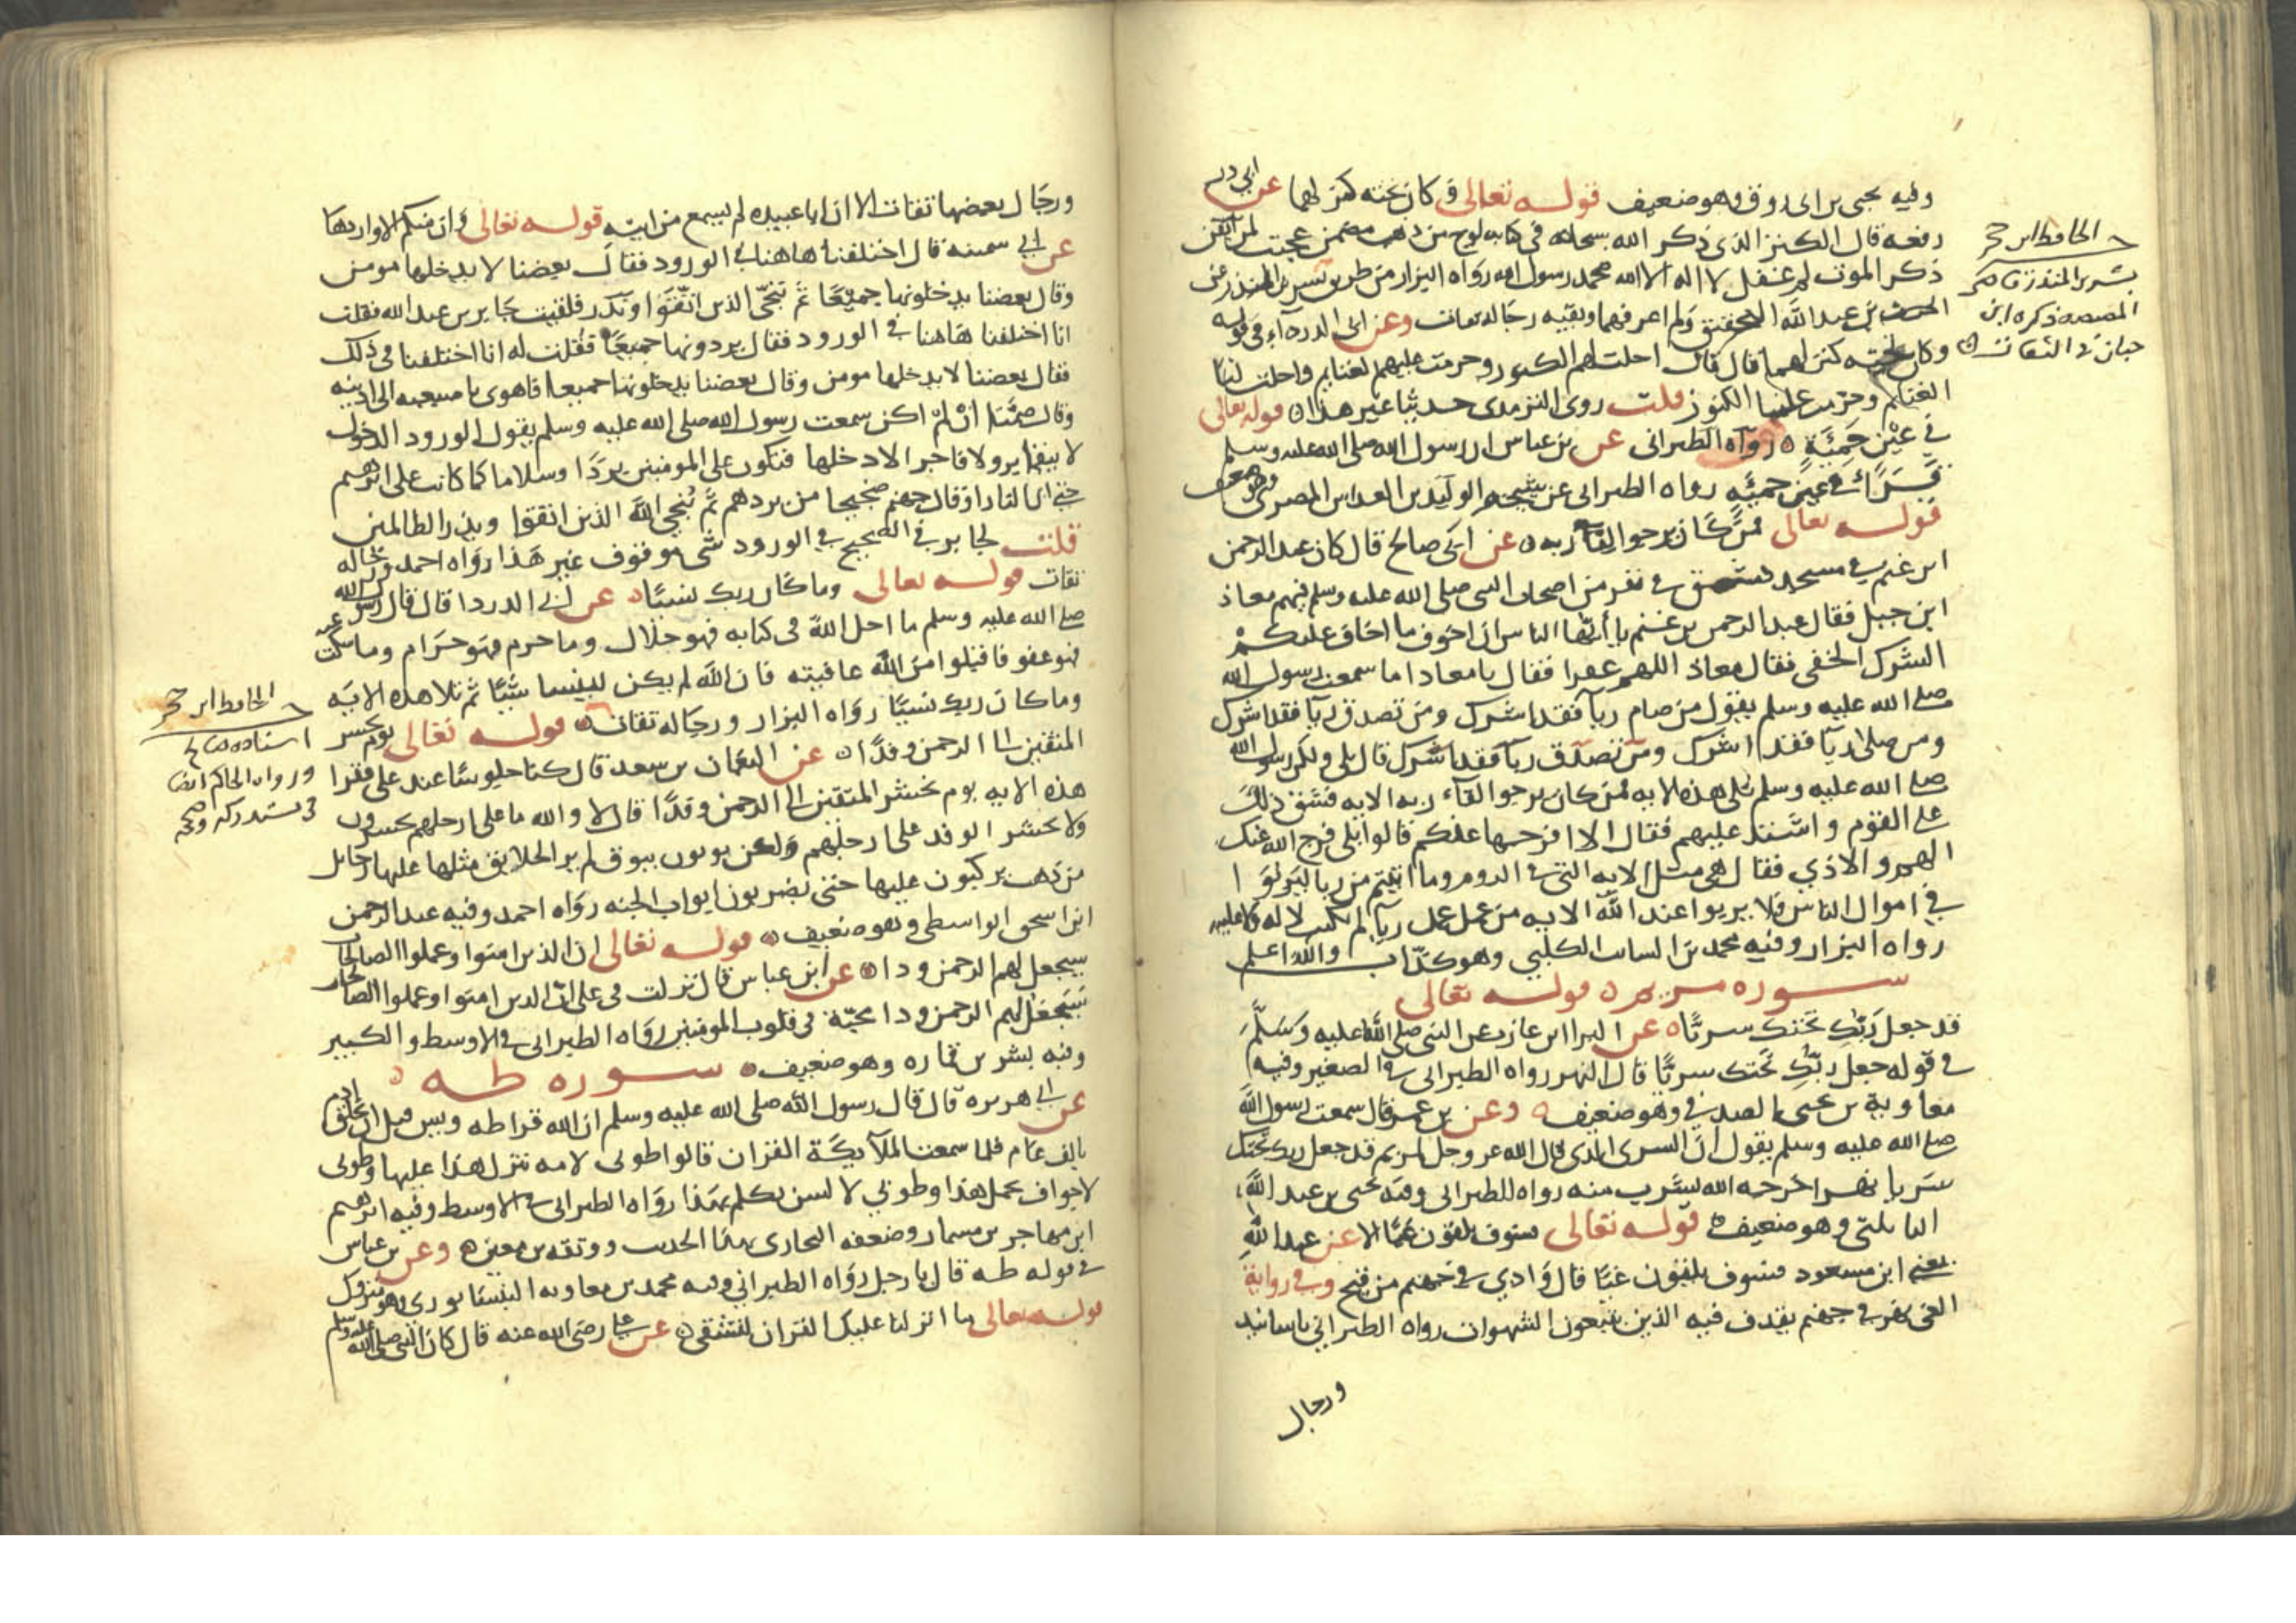 وفيه يحيى بن ابى روق وهو ضعيف قوله تعالى وكان تحته كنز لهما عن ابى ذر
رفعه قال الكنز الذى ذكر الله سبحانه فى كتابه لوح من ذهب مصمت عجبت لمن ايقن
ذكر الموت لم غفل لا اله الا الله محمد رسول الله رواه البزار من طريق بشر بن المنذر عن
الحرث بن عبد الله اليحصبى ولم اعرفهما وبقيه رجاله ثقات وعن ابى الدرداء فى قوله
وكان تحته كنز لهما قال قال احلت لهم الكنوز وحرمت عليهم الغنايم واحلت لنا
الغنائم وحرمت علينا الكنوز قلت روى الترمذى حديثا غير هذا قوله تعالى
في عين حمئة رواه الطبرانى عن بن عباس ان رسول الله صلى الله عليه وسلم
قرا في عين حمئه رواه الطبرانى عن شيخه الوليد بن العداس المصرى وهو ضعيف
قوله تعالى فمن كان يرجوا لقاء ربه عن ابى صالح قال كان عبد الرحمن
ابن غنم في مسجد دمشق في نفر من اصحاب النبى صلى الله عليه وسلم فيهم معاذ
ابن جبل فقال عبد الرحمن بن غنم يا أيها الناس ان اخوف ما اخاف عليكم
الشرك الخفى فقال معاذ اللهم غفرا فقال يا معاذ اما سمعت رسول الله
صلى الله عليه وسلم يقول من صام رياً فقد اشرك ومن تصدق رياً فقد اشرك
ومن صلى رياً فقد اشرك ومن تصدق رياً فقد اشرك قال بلى ولكن رسول الله
صلى الله عليه وسلم تلى هذه الايه فمن كان يرجوا لقاء ربه الايه فشق ذلك
على القوم واشتد عليهم فقال الا افرجها عنكم قالوا بلى فرج الله عنك
الهم والاذي فقال هى مثل الايه التى فى الروم وما اتيتم من ربا ليربوا
في اموال الناس فلا يربوا عند الله الايه من عمل عمل رياً لم يكتب لا له ولا عليه
رواه البزار وفيه محمد بن السائب الكلبي وهو كذاب والله اعلم
سوره مريم قوله تعالى
قد جعل ربك تحتك سريا عن البراابن عازب عن النبى صلى الله عليه وسلم
في قوله جعل ربك تحتك سريا قال النهر رواه الطبرانى فى الصغير وفيه
معاوية بن يحيى الصدفي وهو ضعيف وعن بن عمر قال سمعت رسول الله
صلى الله عليه وسلم يقول ان السرى الذى قال الله عز وجل لمريم قد جعل ربك تحتك
سريا نهر اخرجه الله لتشرب منه رواه الطبرانى وفيه يحيى بن عبد الله
البابلتى وهو ضعيف قوله تعالى فسوف يلقون غيا الا عن عبد الله
يعنى ابن مسعود فسوف يلقون غيا قال وادي في جهنم من قيح وفى رواية
الغى نهر فى جهنم يقذف فيه الذين يتبعون الشهوات رواه الطبراني باسانيد
ورجال
الحافظ ابن حجر
بشر بن المنذر قاضى
المصيصه ذكره ابن
حبان فى الثقات
ورجال بعضها ثقات الا ان ابا عبيده لم يسمع من ابيه قوله تعالى وان منكم الا واردها
عن ابى سمينه قال اختلفنا هاهنا فى الورود فقال بعضنا لا يدخلها مومن
وقال بعضنا يدخلونها جميعًا ثم ننجى الذين اتقوا ونذر فلقيت جابر بن عبد الله فقلت
انا اختلفنا هاهنا في الورود فقال يردونها جميعًا فقلت له انا اختلفنا فى ذلك
فقال بعضنا لا يدخلها مومن وقال بعضنا يدخلونها جميعا فاهوى باصبعيه الى اذنيه
وقال صمتا ان لم اكن سمعت رسول الله صلى الله عليه وسلم يقول الورود الدخول
لا يبقى بر ولا فاجر الا دخلها فتكون على المومنين بردًا وسلاما كما كانت على ابراهيم
حتى ان للنار او قال جهنم ضجيجا من بردهم ثم ننجى الله الذين اتقوا ويذر الظالمين
قلت لجابر في الصحيح في الورود شى موقوف غير هذا رواه احمد ورجاله
ثقات قوله تعالى وما كان ربك نسيًا عن ابى الدردا قال قال رسول الله
صلى الله عليه وسلم ما احل الله فى كتابه فهو حلال وما حرم فهو حرام وما سكت عنه
فهو عفو فاقبلوا من الله عافيته فان الله لم يكن لينسا شيئًا ثم تلا هذه الايه
وما كان ربك نسيًا رواه البزار ورجاله ثقات قوله تعالى يوم نحشر
المتقين الى الرحمن وفدًا عن النعمان بن سعد قال كنا جلوسًا عند على فقرا
هذه الايه يوم نحشر المتقين الى الرحمن وفدًا قال لا والله ما على ارجلهم يحشرون
ولا يحشر الوفد على ارجلهم ولكن يوتون بنوق لم ير الخلايق مثلها عليها رحايل
من ذهب يركبون عليها حتى يضربون ابواب الجنه رواه احمد وفيه عبد الرحمن
ابن اسحق الواسطى وهو ضعيف قوله تعالى ان الذين امنوا وعملوا الصالحات
سيجعل لهم الرحمن ودا عن ابن عباس قال نزلت فى على ان الذين امنوا وعملوا الصالحات
سيجعل لهم الرحمن ودا محبة فى قلوب المومنين رواه الطبرانى فى الاوسط والكبير
وفيه بشر بن عماره وهو ضعيف سوره طه
عن ابى هريره قال قال رسول الله صلى الله عليه وسلم ان الله قرا طه ويس قبل ان يخلق ادم
بالف عام فلما سمعت الملآيكة القران قالوا طوبى لامه تنزل هذا عليها وطوبى
لاجواف تحمل هذا وطوبى لالسن تكلم بهذا رواه الطبرانى فى الاوسط وفيه ابراهيم
ابن مهاجر بن مسمار وضعفه البخارى بهذا الحديث ووثقه بن معين وعن بن عباس
فى قوله طه قال يا رجل رواه الطبراني وفيه محمد بن معاويه النيسابورى وهو متروك
قوله تعالى ما انزلنا عليك القران لتشقى عن على رضى الله عنه قال كان النبى صلى الله عليه وسلم
الحافظ ابن حجر
اسناده صالح
ورواه الحاكم ايضا
فى مستدركه وصححه